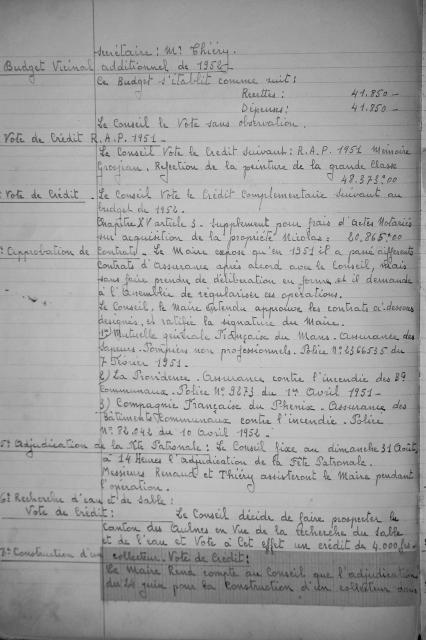 secrétaire: Mr Thiéry.
Budget Vicinal additionnel de 1952 -
Ce Budget s'établit comme suit:
Recettes: 41.850 -
Dépenses: 41.850 -
Le Conseil le Vote sans observation.
Vote de Crédit R.A.P. 1951 -
Le Conseil Vote le Crédit suivant: R.A.P. 1951 Mémoire
Grosjean. Réfection de la peinture de la grande Classe
48.373=00
Vote de Crédit. Le Conseil Vote le Crédit Complémentaire suivant au
budget de 1952.
Chapitre XV article 3. Supplément pour frais d'Actes Notariés
sur acquisition de la propriété Nicolas: 20.865=00
Approbation de Contrats. Le Maire expose qu'en 1951 il a passé différents
Contrats d'Assurance après accord avec le Conseil, mais
sans faire prendre de délibération en forme, et il demande
à l'Assemblée de régulariser ces opérations.
Le Conseil, le Maire entendu approuve les contrats ci-dessous
désignés, et ratifie la signature du Maire.
1) Mutuelle générale Française du Mans. Assurance des
Sapeurs-Pompiers non professionnels. Police No 2366535 du
7 Février 1951.
2) La Providence. Assurance contre l'incendie des B9
Communaux. Police No 9273 du 1er Avril 1951-
3) Compagnie Française du Phenix. Assurance des
Bâtiments Communaux contre l'incendie. Police
No 82.042 du 10 Avril 1952.
5o Adjudication de la Fête Patronale: Le Conseil fixe au dimanche 31 Août,
à 14 Heures l'adjudication de la Fête Patronale.
Messieurs Renaud et Thiéry assisteront le Maire pendant
l'opération.
6o Recherche d'eau et de Sable:
Vote de Crédit: Le Conseil décide de faire prospecter le
Canton des Aulnes en Vue de la recherche du Sable
et de l'eau et Vote à Cet effet un crédit de 4.000 frs.
7o Construction d'un collecteur. Vote de Crédit:
Le Maire Rend compte au Conseil que l'adjudication
du 24 juin pour la Construction d'un collecteur dans